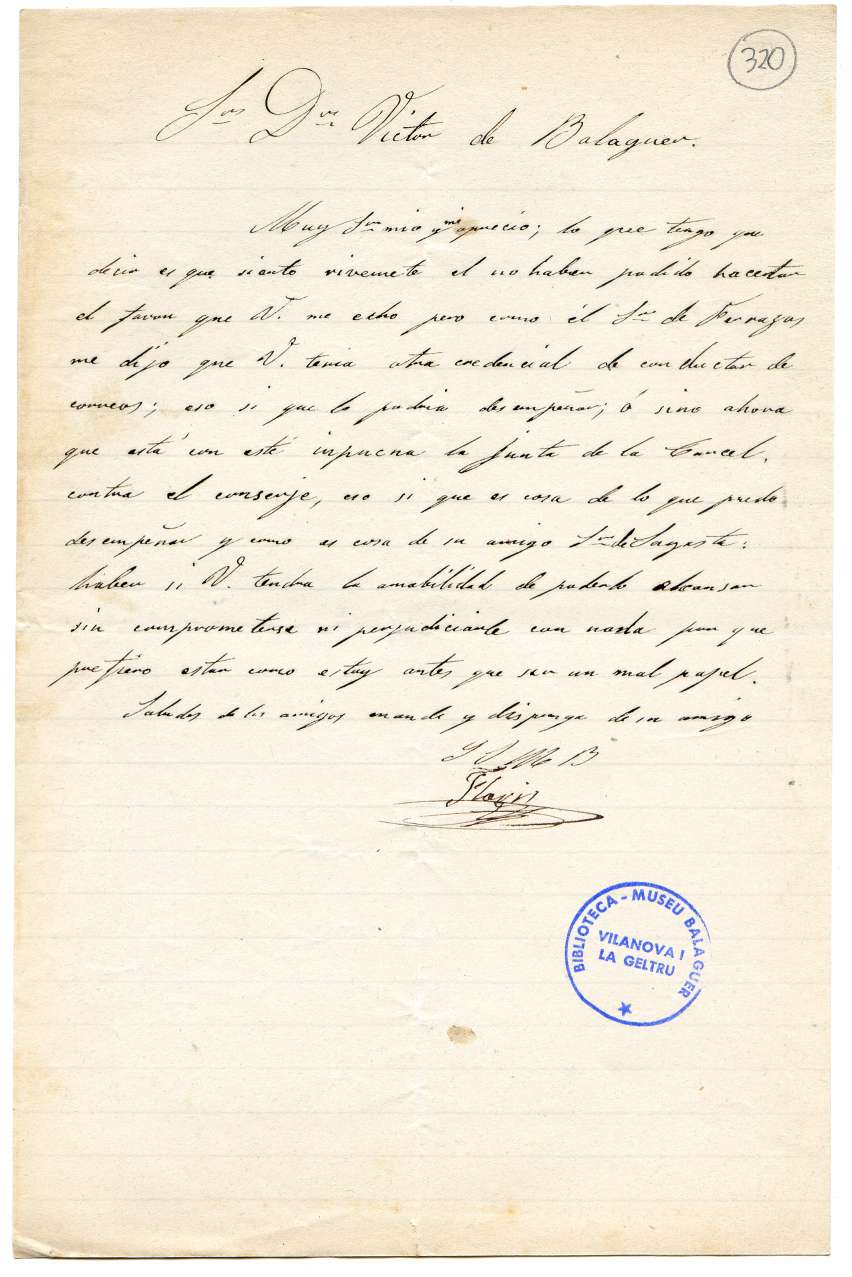 320
Sor Don Victor de Balaguer.
Muy Sr mio y mi aprecio; lo que tengo que
decir es que siento rivemete el no haber podido hacectar
el favor que V. me echo pero como él Sr de Ferrazas
me dijo que V. tenia otra credencial de conductor de
correos; eso si que lo podria desempeñar; ó sino ahora
que está con esté inpucna la junta de la Carcel,
contra el conserje, eso si que es cosa de lo que puedo
desempeñar y como es cosa de su amigo Sr de Sagasta:
haber si V. tendra la amabilidad de poderlo alcansar
sin comprometerse ni perjudiciarle con nada por que
prefiero estar como estoy antes que ser un mal papel.
Saludos de los amigos mande y disponga de su amigo
S S M B
BIBLIOTECA - MUSEU BALAGUER
VILANOVA I
LA GELTRU